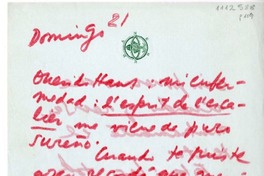 Domingo 21
Querido Hans: mi enfer-
medad: l'esprit de l'esca-
lier me viene de puro
sureño. Cuando te fuiste